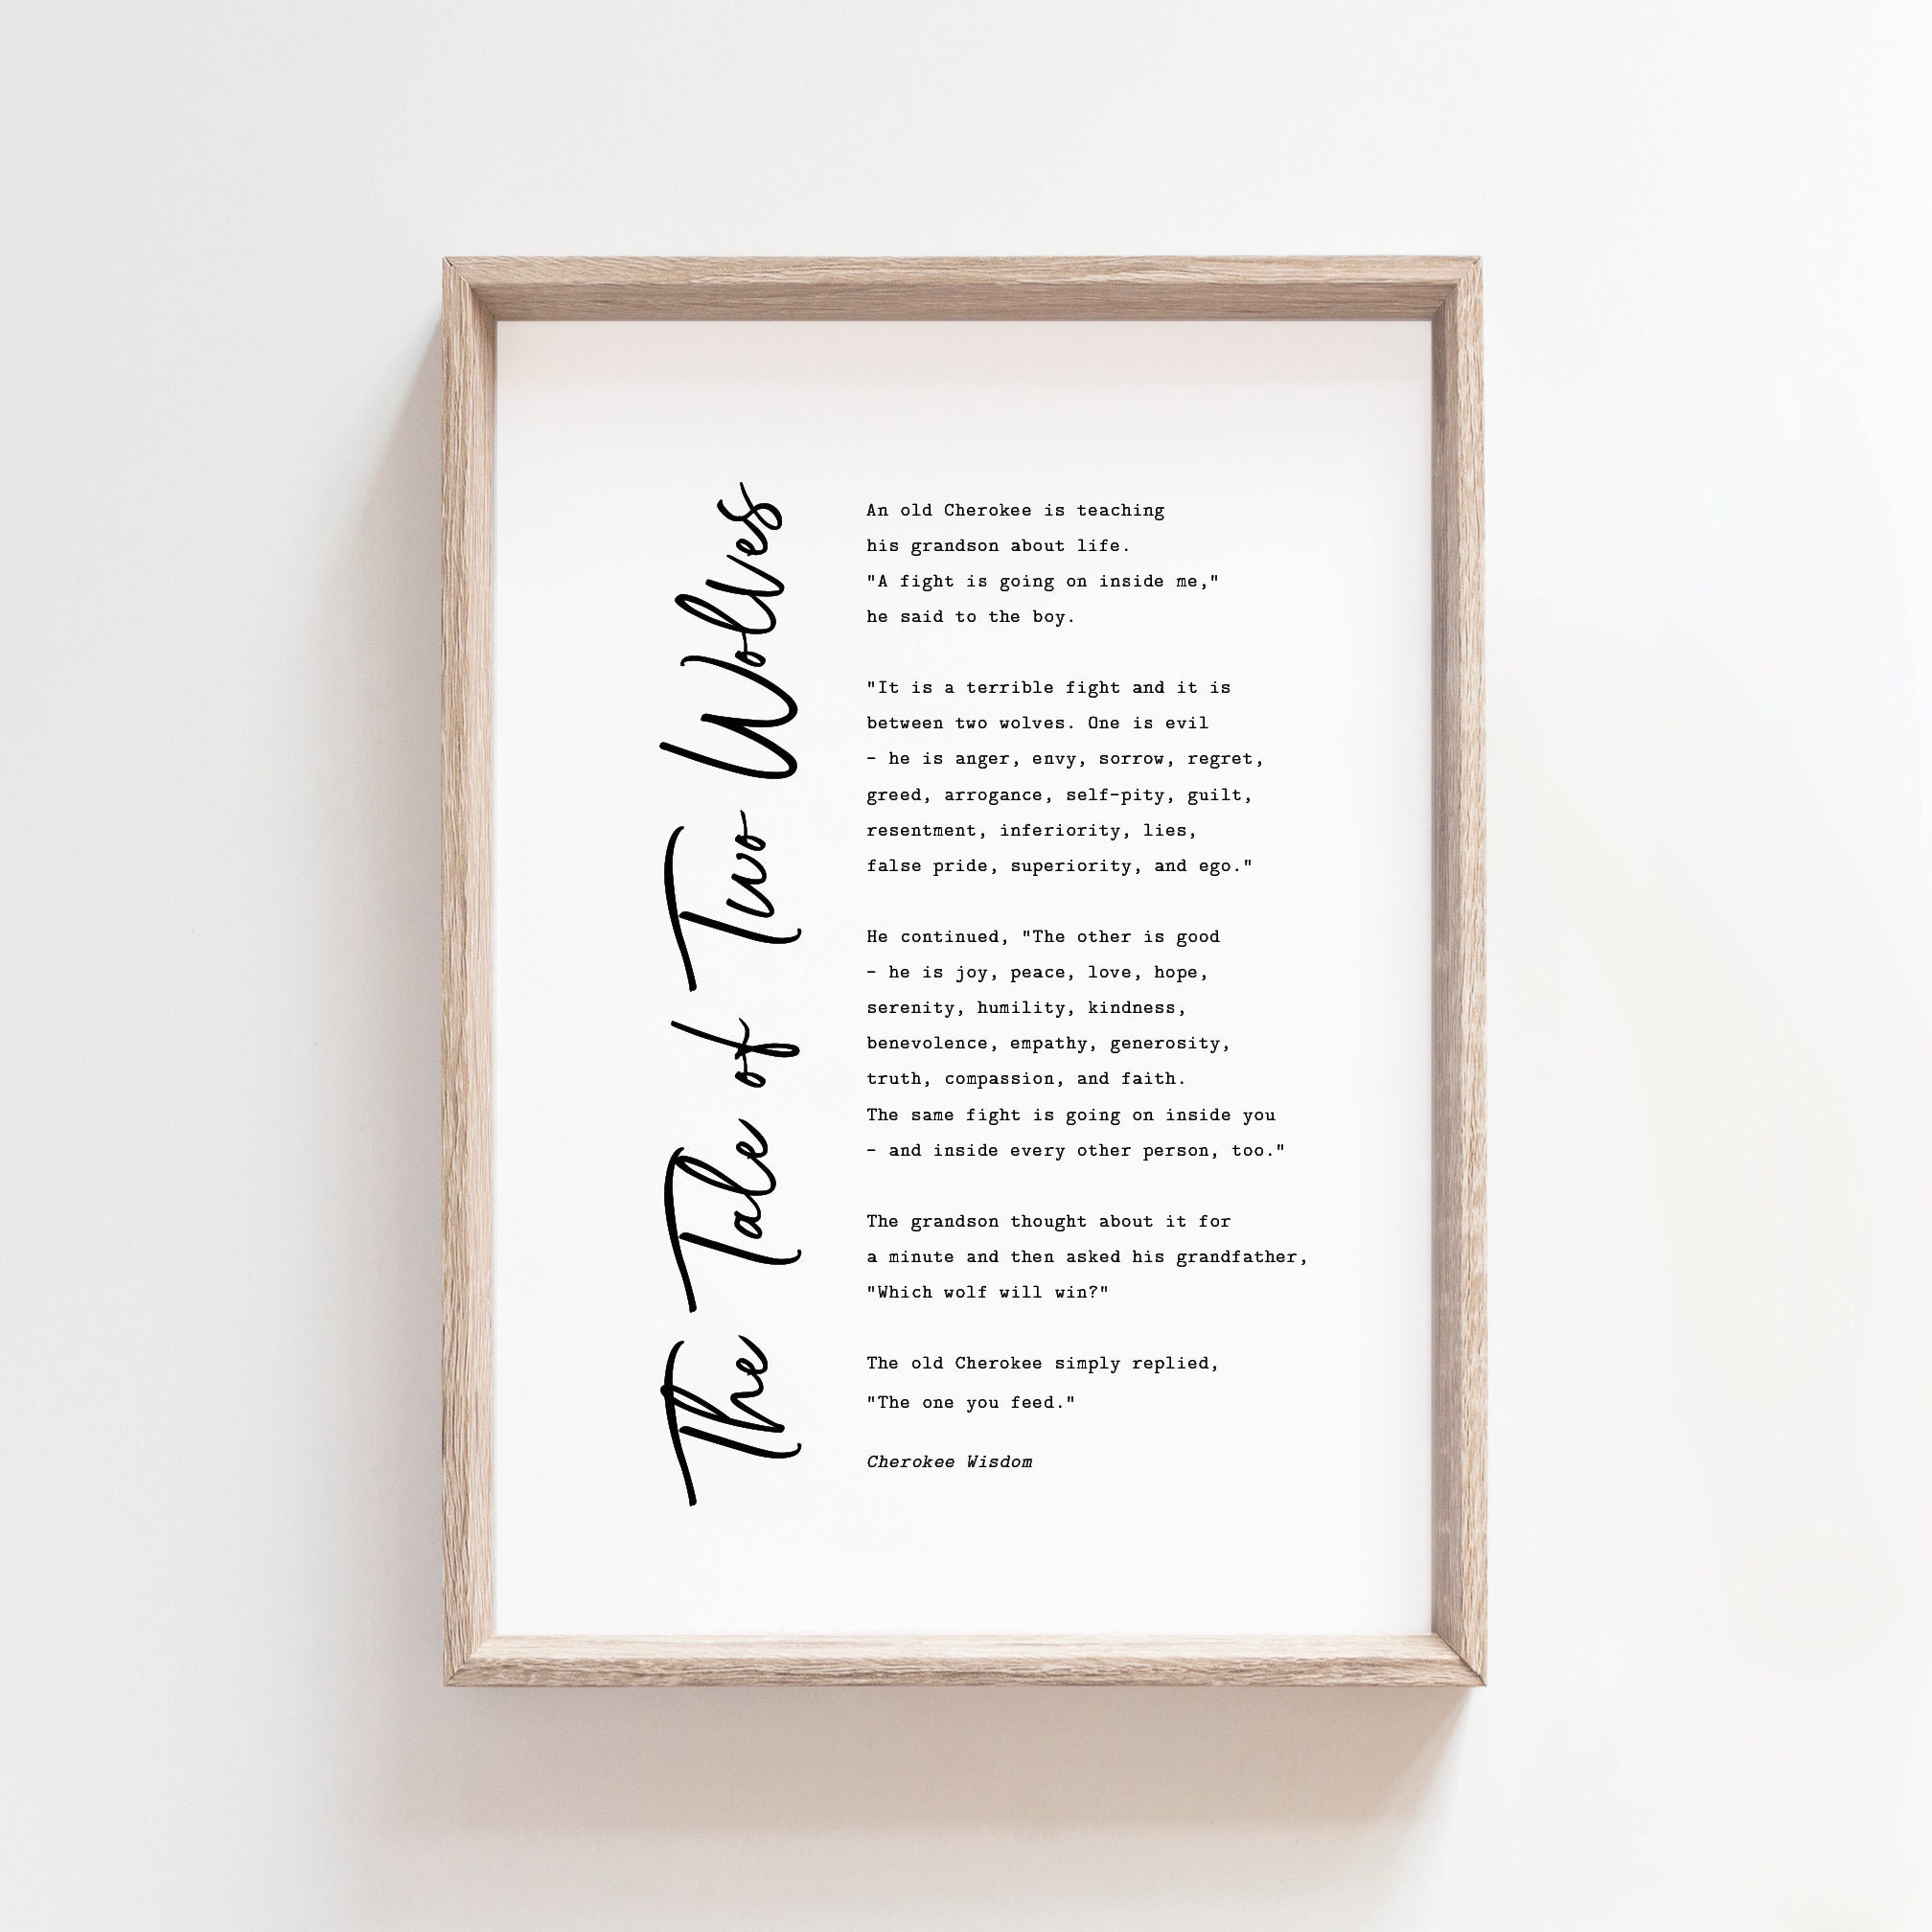 The Tale of Two Wolves
An old Cherokee is teaching
his grandson about life.
"A fight is going on inside me,"
he said to the boy.
"It is a terrible fight and it is
between two wolves. One is evil
- he is anger, envy, sorrow, regret,
greed, arrogance, self-pity, guilt,
resentment, inferiority, lies,
false pride, superiority, and ego."
He continued, "The other is good
- he is joy, peace, love, hope,
serenity, humility, kindness,
benevolence, empathy, generosity,
truth, compassion, and faith.
The same fight is going on inside you
- and inside every other person, too."
The grandson thought about it for
a minute and then asked his grandfather,
"Which wolf will win?"
The old Cherokee simply replied,
"The one you feed."
Cherokee Wisdom